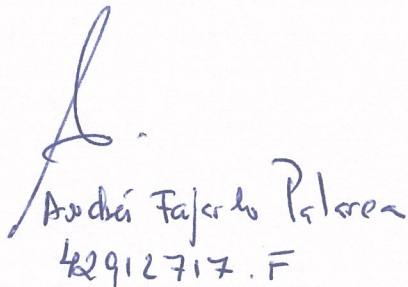 Andrés Fajardo Palarea
42912717.F